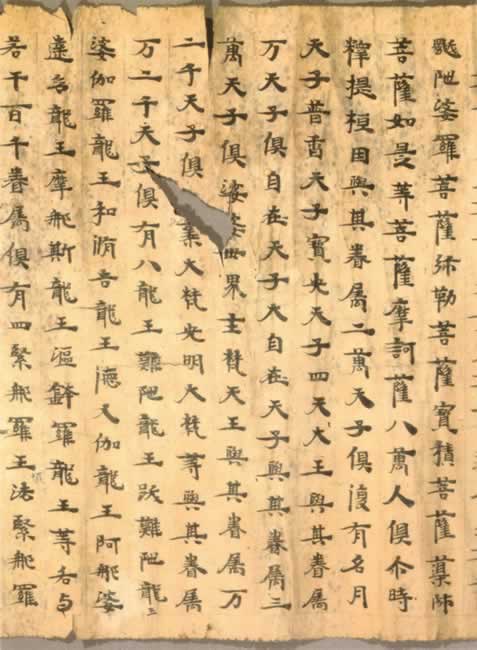 颰陁婆羅菩薩弥勒菩薩寶積菩薩導師
菩薩如是等菩薩摩訶薩八萬人俱尒時
釋提桓因與其眷屬二萬天子俱復有名月
天子普香天子寶光天子四天大王與其眷屬
万天子俱自在天子大自在天子與其眷屬三
萬天子俱娑婆世界主梵天王與其眷屬万
二千天子俱棄大梵光明大梵等與其眷屬
万二千天子俱有八龍王難陁龍王跋難陁龍〻
娑伽羅龍王和脩吉龍王德叉伽龍王阿那婆
達多龍王摩那斯龍王漚鉢羅龍王等各与
若干百千眷屬俱有四緊那羅王法緊那羅